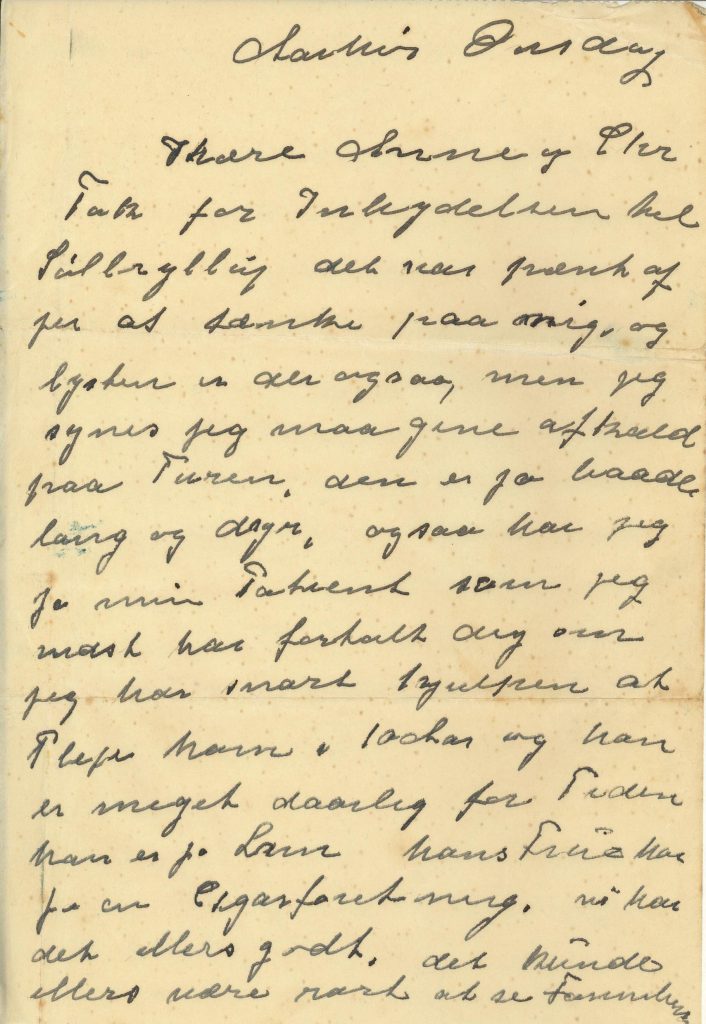 Aarhus Onsdag
Kære Anne og Chr
Tak for Indbydelsen til
Sølbryllup det var pænt af
jer at tænke paa mig, og
lysten er der ogsaa, men jeg
synes jeg maa give afkald
paa Turen, den er jo baade
lang og dyr, ogsaa har jeg
jo min Patient som jeg
nok har fortalt dig om
jeg har snart hjulpen at
Pleje ham i 10 Aar og han
er meget daarlig for Tiden
han er jo Lam hans Frue har
jo en Cigarforetning. vi har
det ellers godt. det kunde
ellers være rart at se Familien